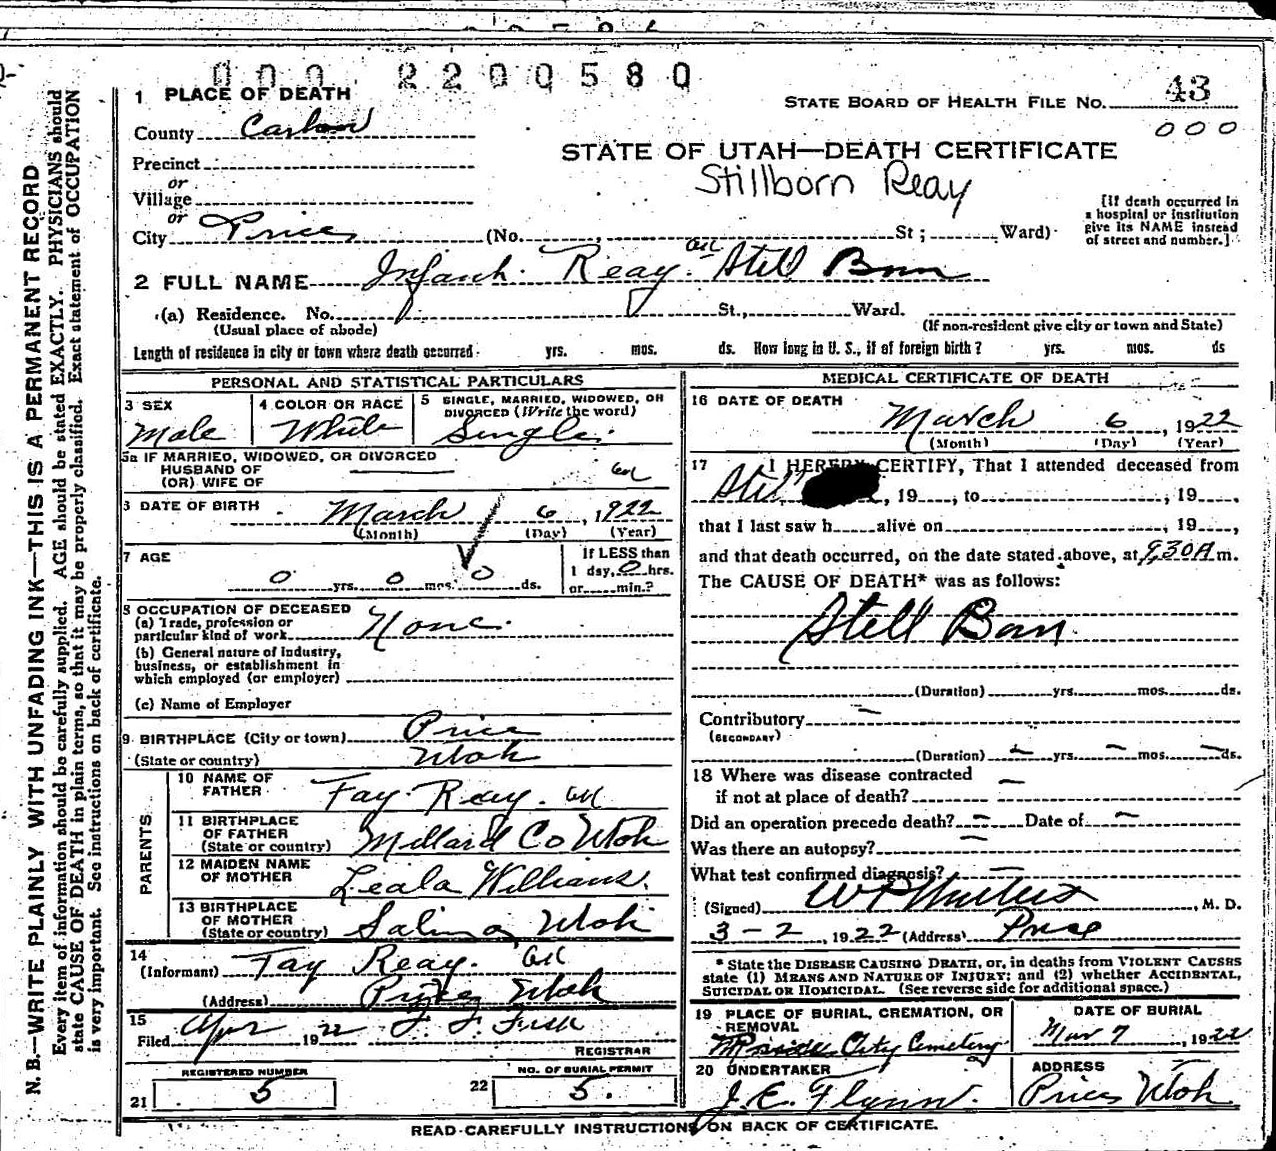 000 2200580
1 PLACE OF DEATH
STATE BOARD OF HEALTH FILE No. 43
000
County Carbon
STATE OF UTAH—DEATH CERTIFICATE
Precinct
Stillborn Reay
or
Village
or
City Price (No. St; Ward)
[If death occurred in a hospital or institution give its NAME instead of street and number.]
2 FULL NAME Infant Reay Still Born
(a) Residence. No. St., Ward.
(Usual place of abode) (If non-resident give city or town and State)
Length of residence in city or town where death occurred yrs. mos. ds. How long in U. S., if of foreign birth? yrs. mos. ds
N. B.—WRITE PLAINLY WITH UNFADING INK—THIS IS A PERMANENT RECORD
Every item of information should be carefully supplied. AGE should be stated EXACTLY. PHYSICIANS should
state CAUSE OF DEATH in plain terms, so that it may be properly classified. Exact statement of OCCUPATION
is very important. See instructions on back of certificate.
PERSONAL AND STATISTICAL PARTICULARS
3 SEX
Male
4 COLOR OR RACE
White
5 SINGLE, MARRIED, WIDOWED, OR
DIVORCED (Write the word)
Single
5a IF MARRIED, WIDOWED, OR DIVORCED
HUSBAND OF
(OR) WIFE OF
DATE OF BIRTH March 6, 1922
(Month) (Day) (Year)
7 AGE
0 yrs. 0 mos. 0 ds.
If LESS than
1 day, 0 hrs.
or min.?
8 OCCUPATION OF DECEASED
(a) Trade, profession or
particular kind of work None
(b) General nature of Industry,
business, or establishment in
which employed (or employer)
(c) Name of Employer
9 BIRTHPLACE (City or town) Price
(State or country) Utah
PARENTS
10 NAME OF
FATHER Fay Reay
11 BIRTHPLACE
OF FATHER
(State or country) Millard Co Utah
12 MAIDEN NAME
OF MOTHER Leala Williams
13 BIRTHPLACE
OF MOTHER
(State or country) Salina Utah
14
(Informant) Fay Reay
(Address) Price Utah
15
Filed Apr 1922
REGISTRAR
REGISTERED NUMBER
21 5
NO. OF BURIAL PERMIT
22 5.
MEDICAL CERTIFICATE OF DEATH
16 DATE OF DEATH
March 6, 1922
(Month) (Day) (Year)
17 I HEREBY CERTIFY, That I attended deceased from
Still , 19 , to , 19 ,
that I last saw h alive on , 19 ,
and that death occurred, on the date stated above, at 9,30A m.
The CAUSE OF DEATH* was as follows:
Still Born
(Duration) yrs. mos. ds.
Contributory —
(SECONDARY)
(Duration) — yrs — mos. — ds.
18 Where was disease contracted
if not at place of death? —
Did an operation precede death? — Date of —
Was there an autopsy? —
What test confirmed diagnosis? —
(Signed) , M. D.
3-2, 1922 (Address) Price
* State the DISEASE CAUSING DEATH, or, in deaths from VIOLENT CAUSES
state (1) MEANS AND NATURE OF INJURY; and (2) whether ACCIDENTAL,
SUICIDAL OR HOMICIDAL. (See reverse side for additional space.)
19 PLACE OF BURIAL, CREMATION, OR
REMOVAL
City Cemetery
DATE OF BURIAL
Mar 7, 1922
20 UNDERTAKER
J. E. Flynn.
ADDRESS
Price Utah
READ CAREFULLY INSTRUCTIONS ON BACK OF CERTIFICATE.